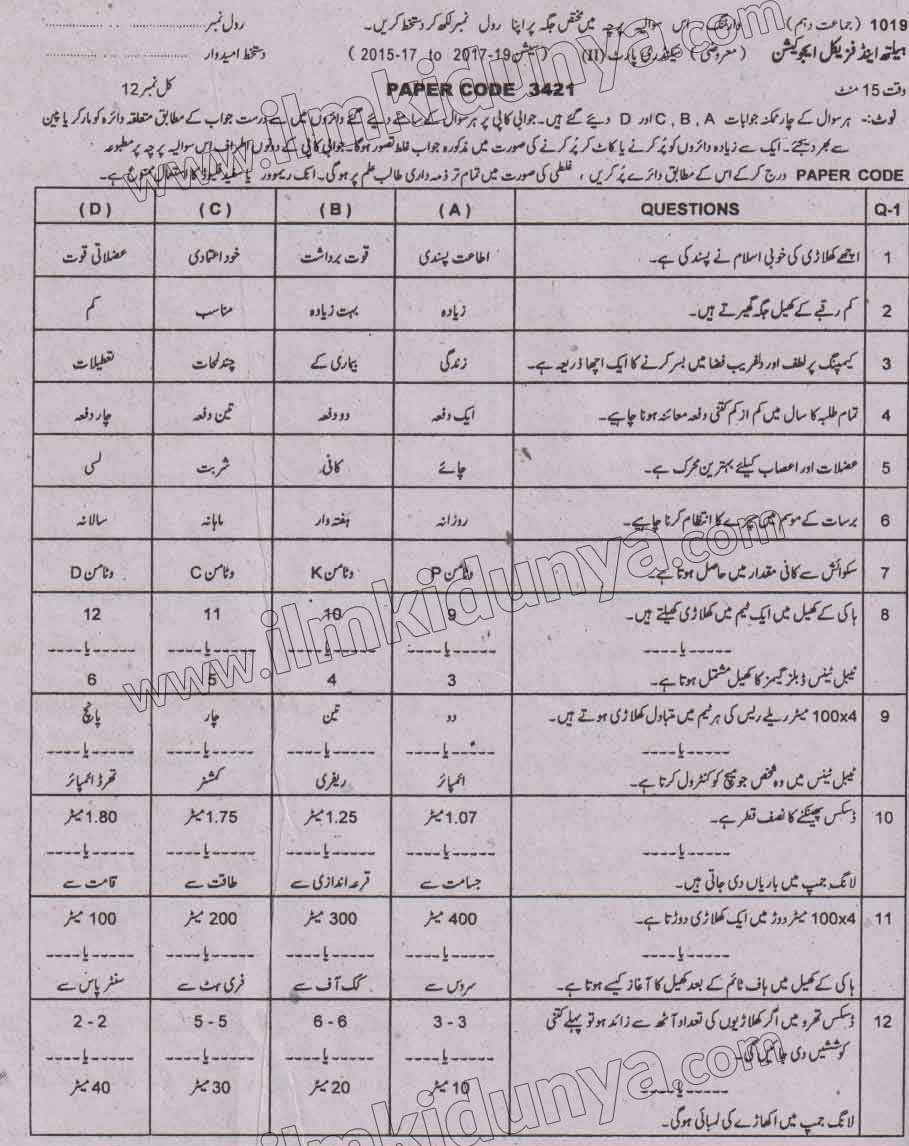 1019 (جماعت دہم) وارننگ: اس سوالیہ پرچہ میں مختص جگہ پر اپنا رول نمبر لکھ کر دستخط کریں۔ رول نمبر
ہیلتھ اینڈ فزیکل ایجوکیشن (معروضی) سیکنڈری پارٹ (II) (سیشن 2015-17 to 2017-19) دستخط امیدوار
وقت 15 منٹ PAPER CODE 3421 کل نمبر 12
نوٹ:- ہر سوال کے چار ممکنہ جوابات C , B , A اور D دیئے گئے ہیں۔ جوابی کاپی پر ہر سوال کے سامنے دیئے گئے دائروں میں سے درست جواب کے مطابق متعلقہ دائرہ کو مارکر یا پین
سے بھر دیجئے۔ ایک سے زیادہ دائروں کو پُر کرنے یا کاٹ کر پُر کرنے کی صورت میں مذکورہ جواب غلط تصور ہوگا۔ جوابی کاپی کے دونوں اطراف اس سوالیہ پرچہ پر مطبوعہ
PAPER CODE درج کرکے اس کے مطابق دائرے پُر کریں ، غلطی کی صورت میں تمام تر ذمہ داری طالب علم پر ہوگی۔ انک ریموور یا سفید فلیوڈ کا استعمال ممنوع ہے۔
Q-1 QUESTIONS (A) (B) (C) (D)
1 اچھے کھلاڑی کی خوبی اسلام نے پسند کی ہے۔ اطاعت پسندی قوت برداشت خود اعتمادی عضلاتی قوت
2 کم رقبے کے کھیل جگہ گھیرتے ہیں۔ زیادہ بہت زیادہ مناسب کم
3 کیمپنگ پر لطف اور دلفریب فضا میں بسر کرنے کا ایک اچھا ذریعہ ہے۔ زندگی بیماری کے چند لمحات تعطیلات
4 تمام طلبہ کا سال میں کم از کم کتنی دفعہ معائنہ ہونا چاہیے۔ ایک دفعہ دو دفعہ تین دفعہ چار دفعہ
5 عضلات اور اعصاب کیلئے بہترین محرک ہے۔ چائے کافی شربت لسی
6 برسات کے موسم میں سپرے کا انتظام کرنا چاہیے۔ روزانہ ہفتہ وار ماہانہ سالانہ
7 سکوائش سے کافی مقدار میں حاصل ہوتا ہے۔ وٹامن P وٹامن K وٹامن C وٹامن D
8 ہاکی کے کھیل میں ایک ٹیم میں کھلاڑی کھیلتے ہیں۔ 9 10 11 12
-----یا---- -----یا---- -----یا---- -----یا---- -----یا----
ٹیبل ٹینس ڈبلز گیمز کا کھیل مشتمل ہوتا ہے۔ 3 4 5 6
9 100x4 میٹر ریلے ریس کی ہر ٹیم میں متبادل کھلاڑی ہوتے ہیں۔ دو تین چار پانچ
-----یا---- -----یا---- -----یا---- -----یا---- -----یا----
ٹیبل ٹینس میں وہ شخص جو میچ کو کنٹرول کرتا ہے۔ امپائر ریفری کمشنر تھرڈ امپائر
10 ڈسکس پھینکنے کا نصف قطر ہے۔ 1.07 میٹر 1.25 میٹر 1.75 میٹر 1.80 میٹر
-----یا---- -----یا---- -----یا---- -----یا---- -----یا----
لانگ جمپ میں باریاں دی جاتی ہیں۔ جسامت سے قرعہ اندازی سے طاقت سے قامت سے
11 100x4 میٹر دوڑ میں ایک کھلاڑی دوڑتا ہے۔ 400 میٹر 300 میٹر 200 میٹر 100 میٹر
-----یا---- -----یا---- -----یا---- -----یا---- -----یا----
ہاکی کے کھیل میں ہاف ٹائم کے بعد کھیل کا آغاز کیسے ہوتا ہے۔ سروس سے کک آف سے فری ہٹ سے سنٹر پاس سے
12 ڈسکس تھرو میں اگر کھلاڑیوں کی تعداد آٹھ سے زائد ہو تو پہلے کتنی 3 - 3 6 - 6 5 - 5 2 - 2
کوششیں دی جائیں گی۔
-----یا---- -----یا---- -----یا---- -----یا---- -----یا----
لانگ جمپ میں اکھاڑے کی لمبائی ہوگی۔ 10 میٹر 20 میٹر 30 میٹر 40 میٹر
www.ilmkidunya.com
www.ilmkidunya.com
www.ilmkidunya.com
ilmkidunya.com